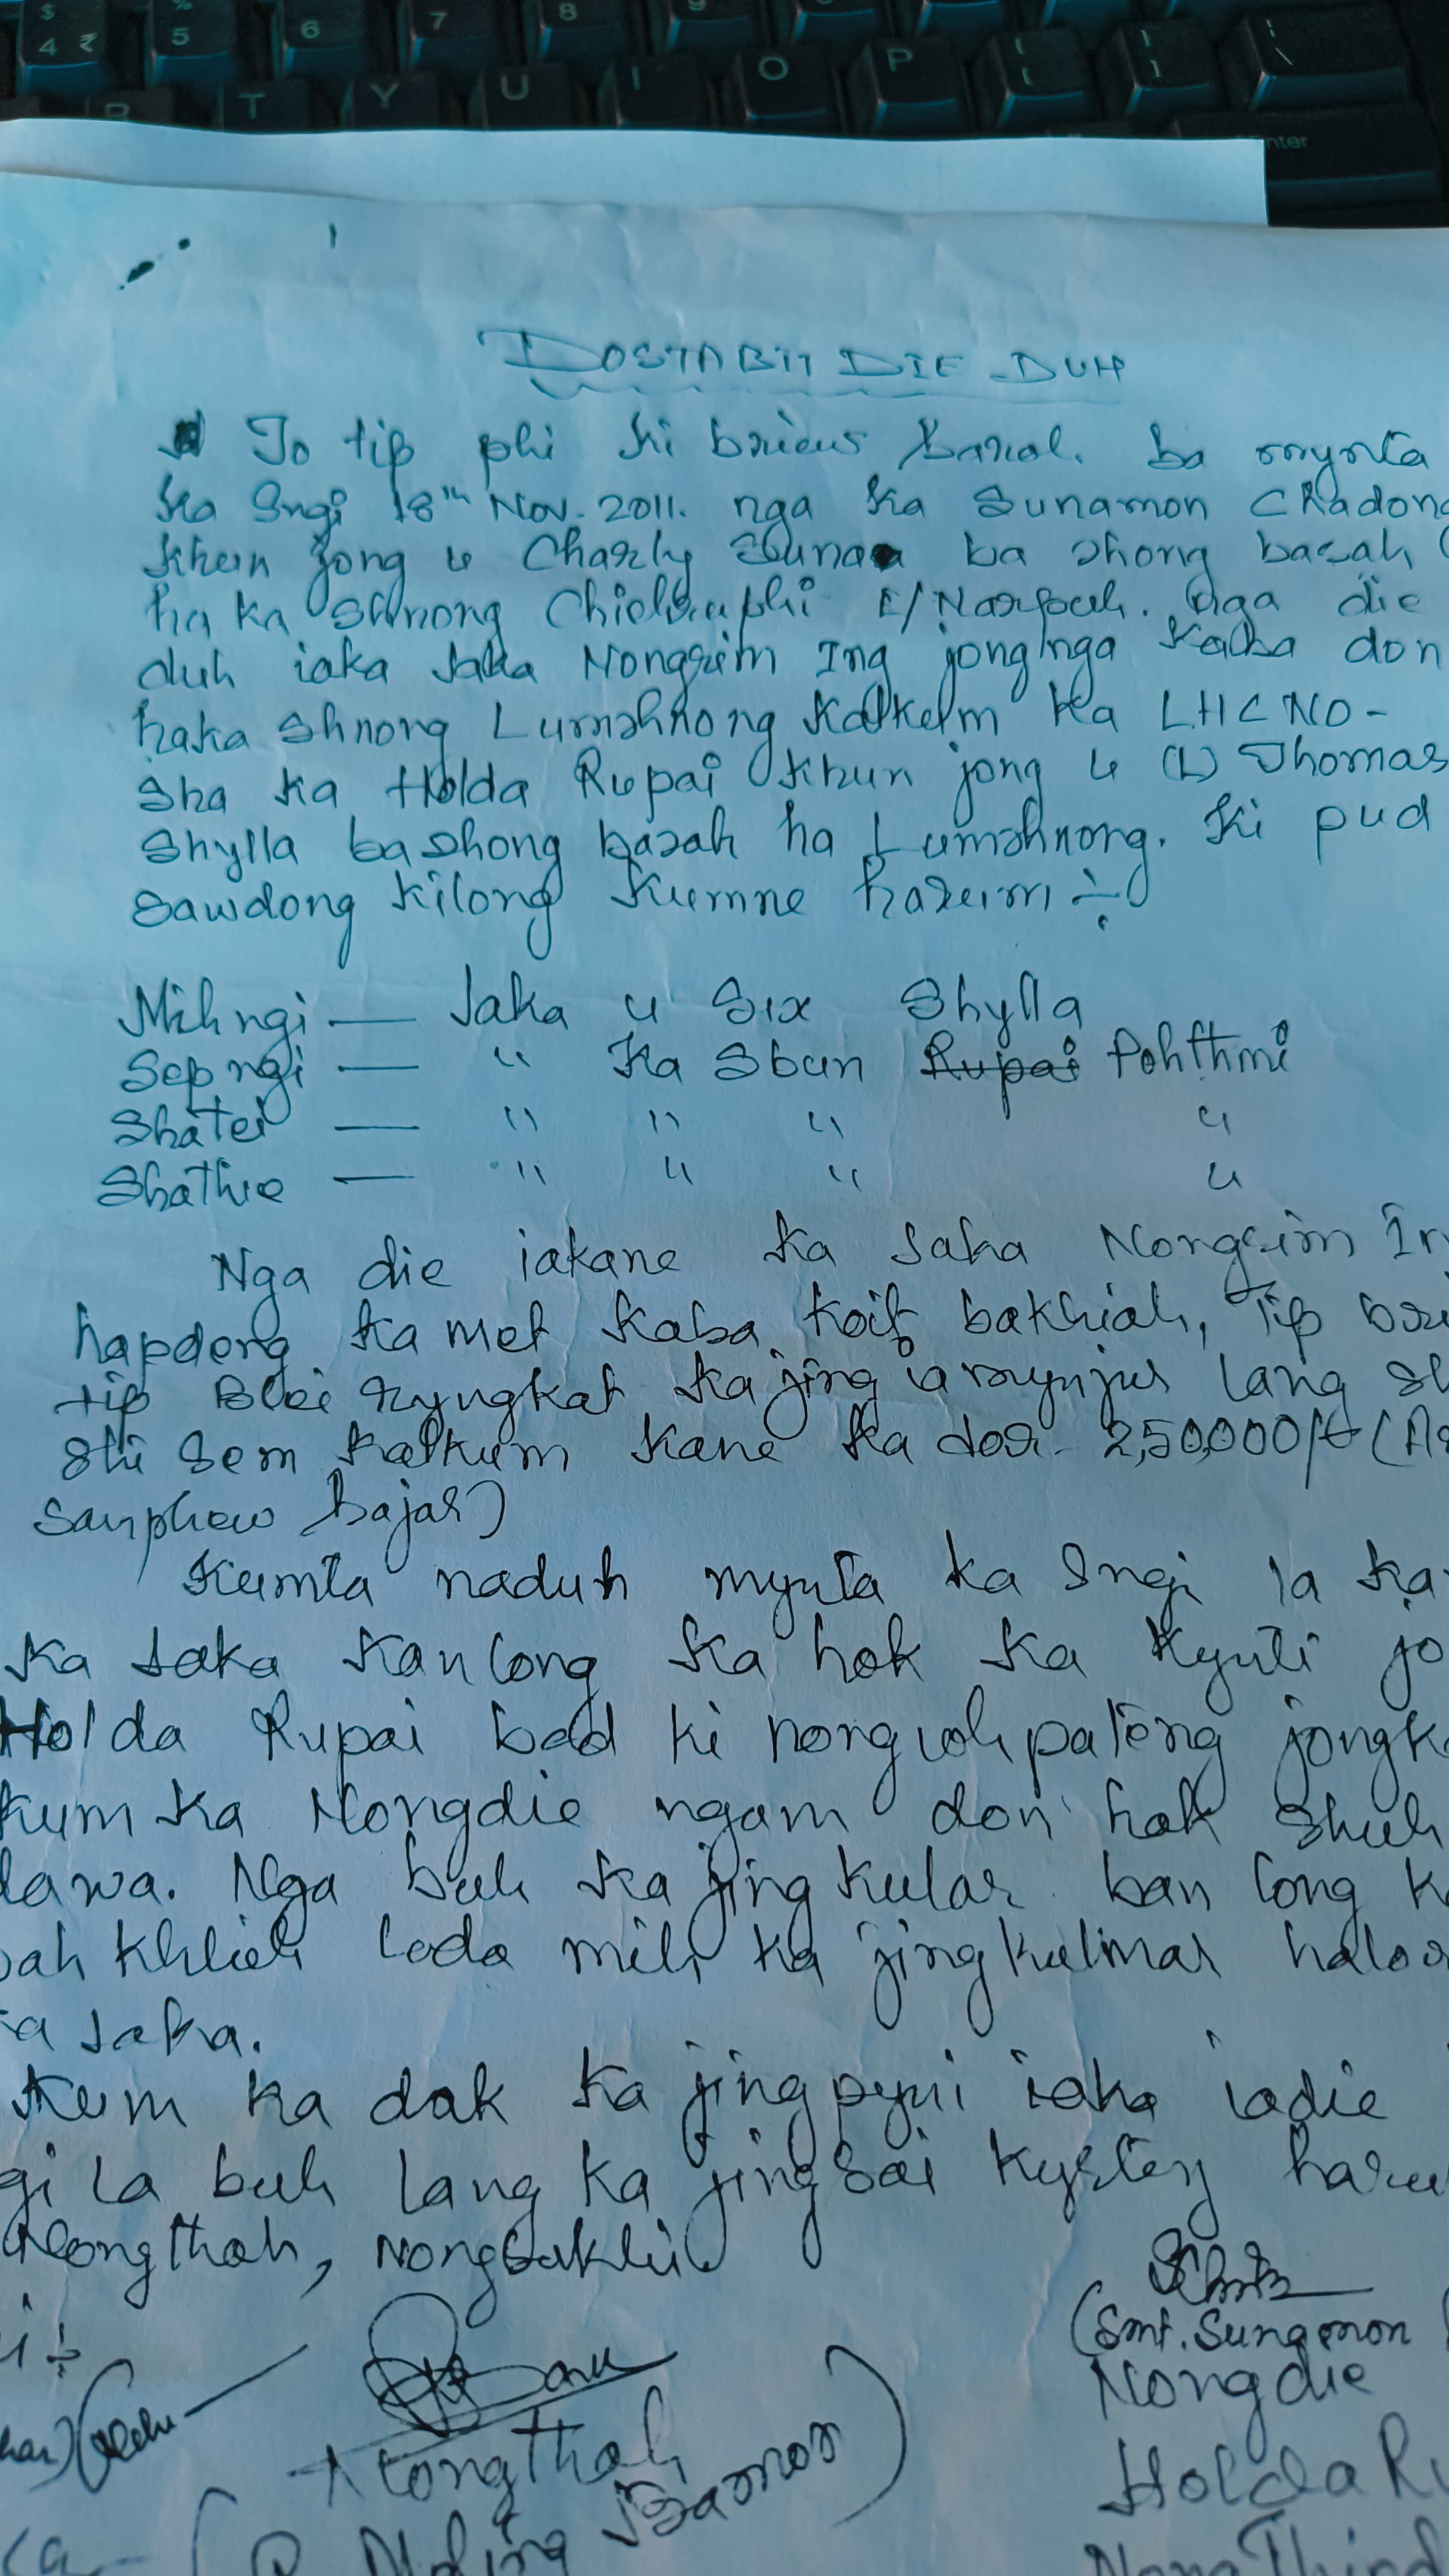 $
4 ₹
5
6
7
8
9
R T Y U I O P { [ } ] | \
Enter
DOSTABIT DIE-DUH
To tip phi ki briew baroh. ba mynta
ka Sngi 18th Nov. 2011. nga ka Sunamon Chadong
khun jong u Charly Suna ba shong basah
ha ka shnong Chiehruphi E/Narpuh. Nga die
duh iaka Jaka Nongrim Ing jong nga kaba don
haka shnong Lumshnong katkum ka LHC NO-
Sha ka Holda Rupai khun jong u (L) Thomas
Shylla ba shong basah ha Lumshnong. Ki pud
sawdong kilong kumne harum ÷
Mihngi — Jaka u Six Shylla
Sepngi — " Ka Sbun Rupai Pohthmi
Shatei — " " " "
Shathie — " " " "
Nga die iakane ka Jaka Nongrim In
hapdeng ka met kaba koit bakhiah, tip bri
tip Blei ryngkat ka jing ia mynjur lang sh
shi sem katkum kane ka dor 2,50,000/- (Ar
sanphew hajar)
Kumta naduh mynta ka Sngi la ka
ka Jaka kan long ka hok ka kynti jo
Holda Rupai bad ki nongiohpateng jongk
kum ka Nongdie ngam don hok shuh
dawa. Nga buh ka jingkular ban long k
bah khlieh lada mih ka jingkulmar halor
a Jaka.
Kum ka dak ka jingpyni iaka iadie
gi la buh lang ka jingsoi kyrteng haru
Nongthoh, Nongsakhi
(Smt. Sunamon
Nongdie
Nongthoh
Bamon)
Holda Ru